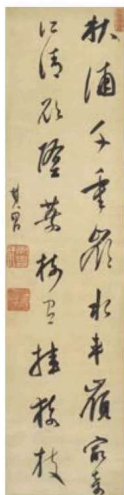 秋浦千重嶺水車嶺最奇
江清欲墮葉樹挂枝
其昌